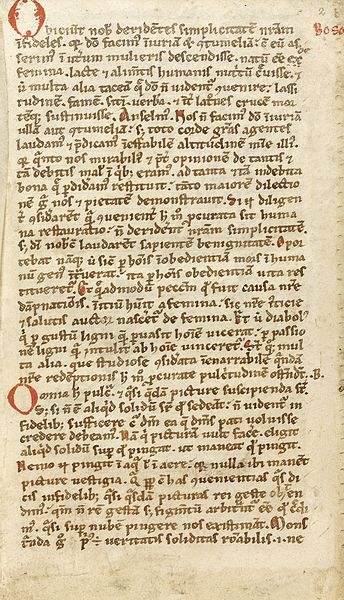 Obiciūt nob̄ deridentes simplicitatē nr̄am Boso
infideles. qꝛ dō facim̄ iniuriā ⁊ ꝯtumeliā. cū eū as
serim̄ ī uterum mulieris descendisse. natū eē ex
femina. lacte ⁊ alim̄tis humanis nutritū creuisse. ⁊
ut multa alia taceā q̄ dō n̄ uident̄ ꝯuenire. lassi
tudinē. famē. sitī. uerba. ⁊ īt̄ latr̄nes crucē mor
tēq; sustinuisse. Anselm̄. Nos n̄ facim̄ dō iniuriā
ullā aut ꝯtumeliā. s; toto corde gr̄as agentes
laudam̄ ⁊ p̄dicam̄ ineffabilē altitudinē mīe illi᷒.
qꝛ q̄nto nos mirabili᷒ ⁊ p̄t̄ opinionē de tantis ⁊
tā debitis mal̄ ī qb; eram̄. ad tanta ⁊ tā indebita
bona q̄ ꝑdidam̄ restituit. tāto maiorē dilectio
nē erga nos ⁊ pietatē demonstrauit. Si .n. diligen
t̄ ꝯsidarēt q̄ ꝯuenient̄ h̄ m̊ ꝓcurata sit huma
na restauratio. n̄ deriderēt nr̄am simplicitatē
s; dī nob̄ laudarēt sapientē benignitatē. Opor
tebat nāq; ut sic̄ ꝑ hoīs inobedientiā mors ī huma
nū gen᷒ int̄uerat. ita ꝑ hoīs obedientiā uita res
titueret᷑. Et q̄admodū pecc̄m q̊d fuit causa nr̄e
dāpnationis. initiū hūit a femina. sic nr̄e iusticie
⁊ salutis auctor nascēt̄ de femina. Et ut diabol᷒
q̄ ꝑ gustū ligni quē ꝑsuasit hoīem uicerat. ꝑ passio
nē ligni quā intulit ab hoīe uincēt̄. St̄ ⁊ mul
ta alia. que studiose ꝯsidata inenarrabilē q̄ndā
nr̄e redēptionis h̄ m̊ ꝓcurate pulcritudinē ostēdūt. B.
Omnia h̄ pulcra ⁊ q̄si q̄dā picture suscipienda sūt.
S; si n̄ ē aliqd solidū sup̄ qđ sedeāt. n̄ uident̄ in
fidelib; sufficere cur dm̄ ea q̄ dicim̄ pati uoluisse
credere debeam̄. Nā q̄ picturā uult facē. eligit
aliqd solidū sup̄ qđ pingat. ut maneat qđ pingit.
Nemo .n. pingit in aqua ut ī aere. qꝛ nulla ibi manēt
picture uestigia. Q̄ꝓp̄ cū has ꝯuenientias q̄s di
cis infidelib; q̄si q̄sdā picturas rei geste ostendim᷒.
q̄m n̄ rē gestā s; figmentū arbitrant̄ eē qđ credi
m᷒. q̄si sup̄ nubē pingere nos existimāt. Mons
tranda ḡ p̄us ē ueritatis soliditas roñabilis .i. ne